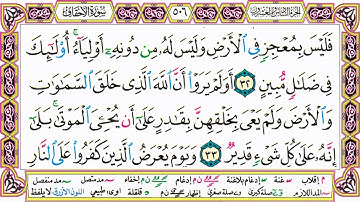 سورة الأحقاف ٥٠٦ الجزء السادس والعشرون
فَلَيْسَ بِمُعْجِزٍ فِي الْأَرْضِ وَلَيْسَ لَهُ مِن دُونِهِ أَوْلِيَاءُ أُوْلَٰئِكَ
فِي ضَلَالٍ مُّبِينٍ ٣٢ أَوَلَمْ يَرَوْا أَنَّ اللَّهَ الَّذِي خَلَقَ السَّمَاوَاتِ
وَالْأَرْضَ وَلَمْ يَعْيَ بِخَلْقِهِنَّ بِقَادِرٍ عَلَىٰ أَن يُحْيِيَ الْمَوْتَىٰ بَلَىٰ
إِنَّهُ عَلَىٰ كُلِّ شَيْءٍ قَدِيرٌ ٣٣ وَيَوْمَ يُعْرَضُ الَّذِينَ كَفَرُوا عَلَى النَّارِ